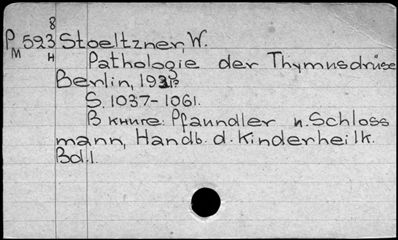 8
P 523 Stoeltzner, W.
M H Pathologie der Thymusdrüse
Berlin,
S. 1037-1061.
В книге: Pfaundler u. Schloss
mann, Handb. d. Kinderheilk.
Bd. 1.